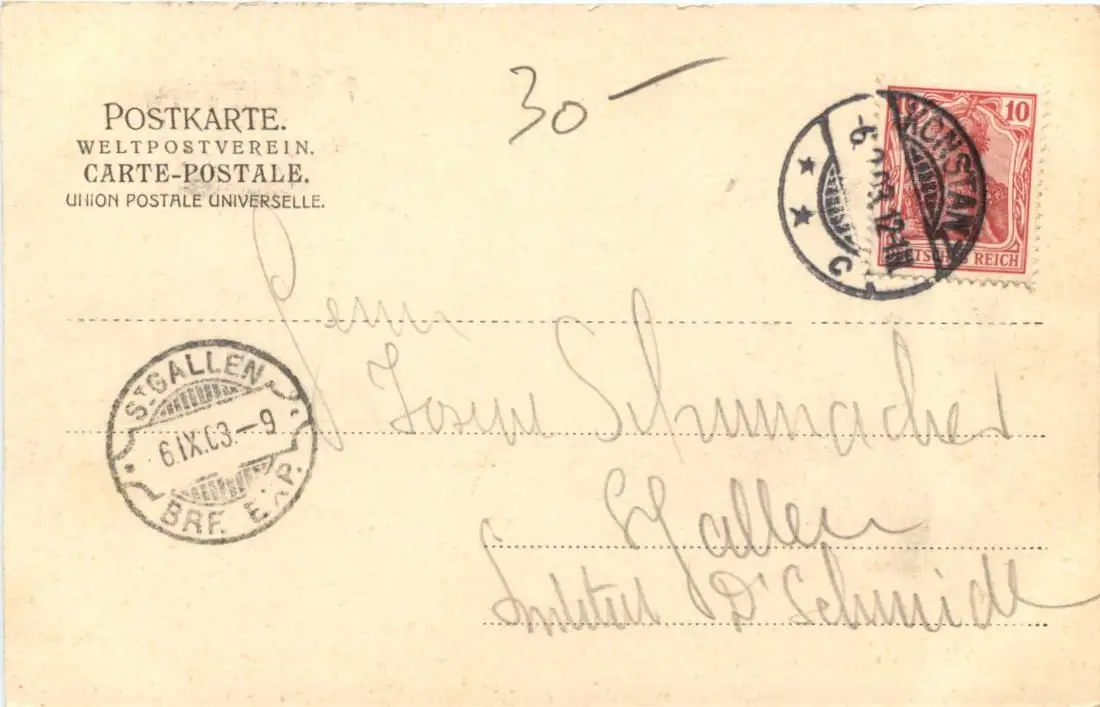 POSTKARTE.
WELTPOSTVEREIN.
CARTE-POSTALE.
UNION POSTALE UNIVERSELLE.
30 –
KONSTANZ
10
DEUTSCHES REICH
C
Herrn
Schumacher
St Gallen
Institut Dr Schmidt
ST GALLEN
6.IX.03.–9
BRF. EXP.